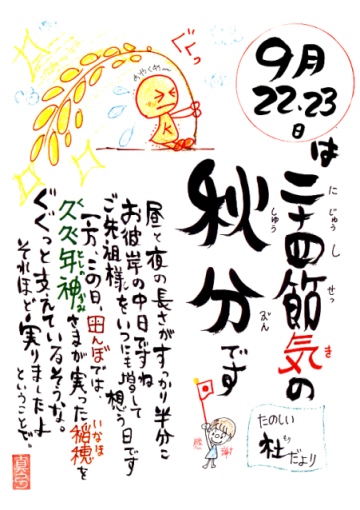 9月
22、23
日
は
二十四節気の
にじゅうしせっき
秋分です
しゅうぶん
昼と夜の長さがすっかり半分こ
お彼岸の中日ですね
ご先祖様をいつにも増して
想う日です
一方、この日、田んぼでは、
久久年神さまが実った稲穂を
くくとしがみ
いなほ
ぐぐっと支えているそうな。
それほど実りましたよ
ということで。
ぐぐっ
おやくやー
K
感
謝
たのしい
杜だより
もり